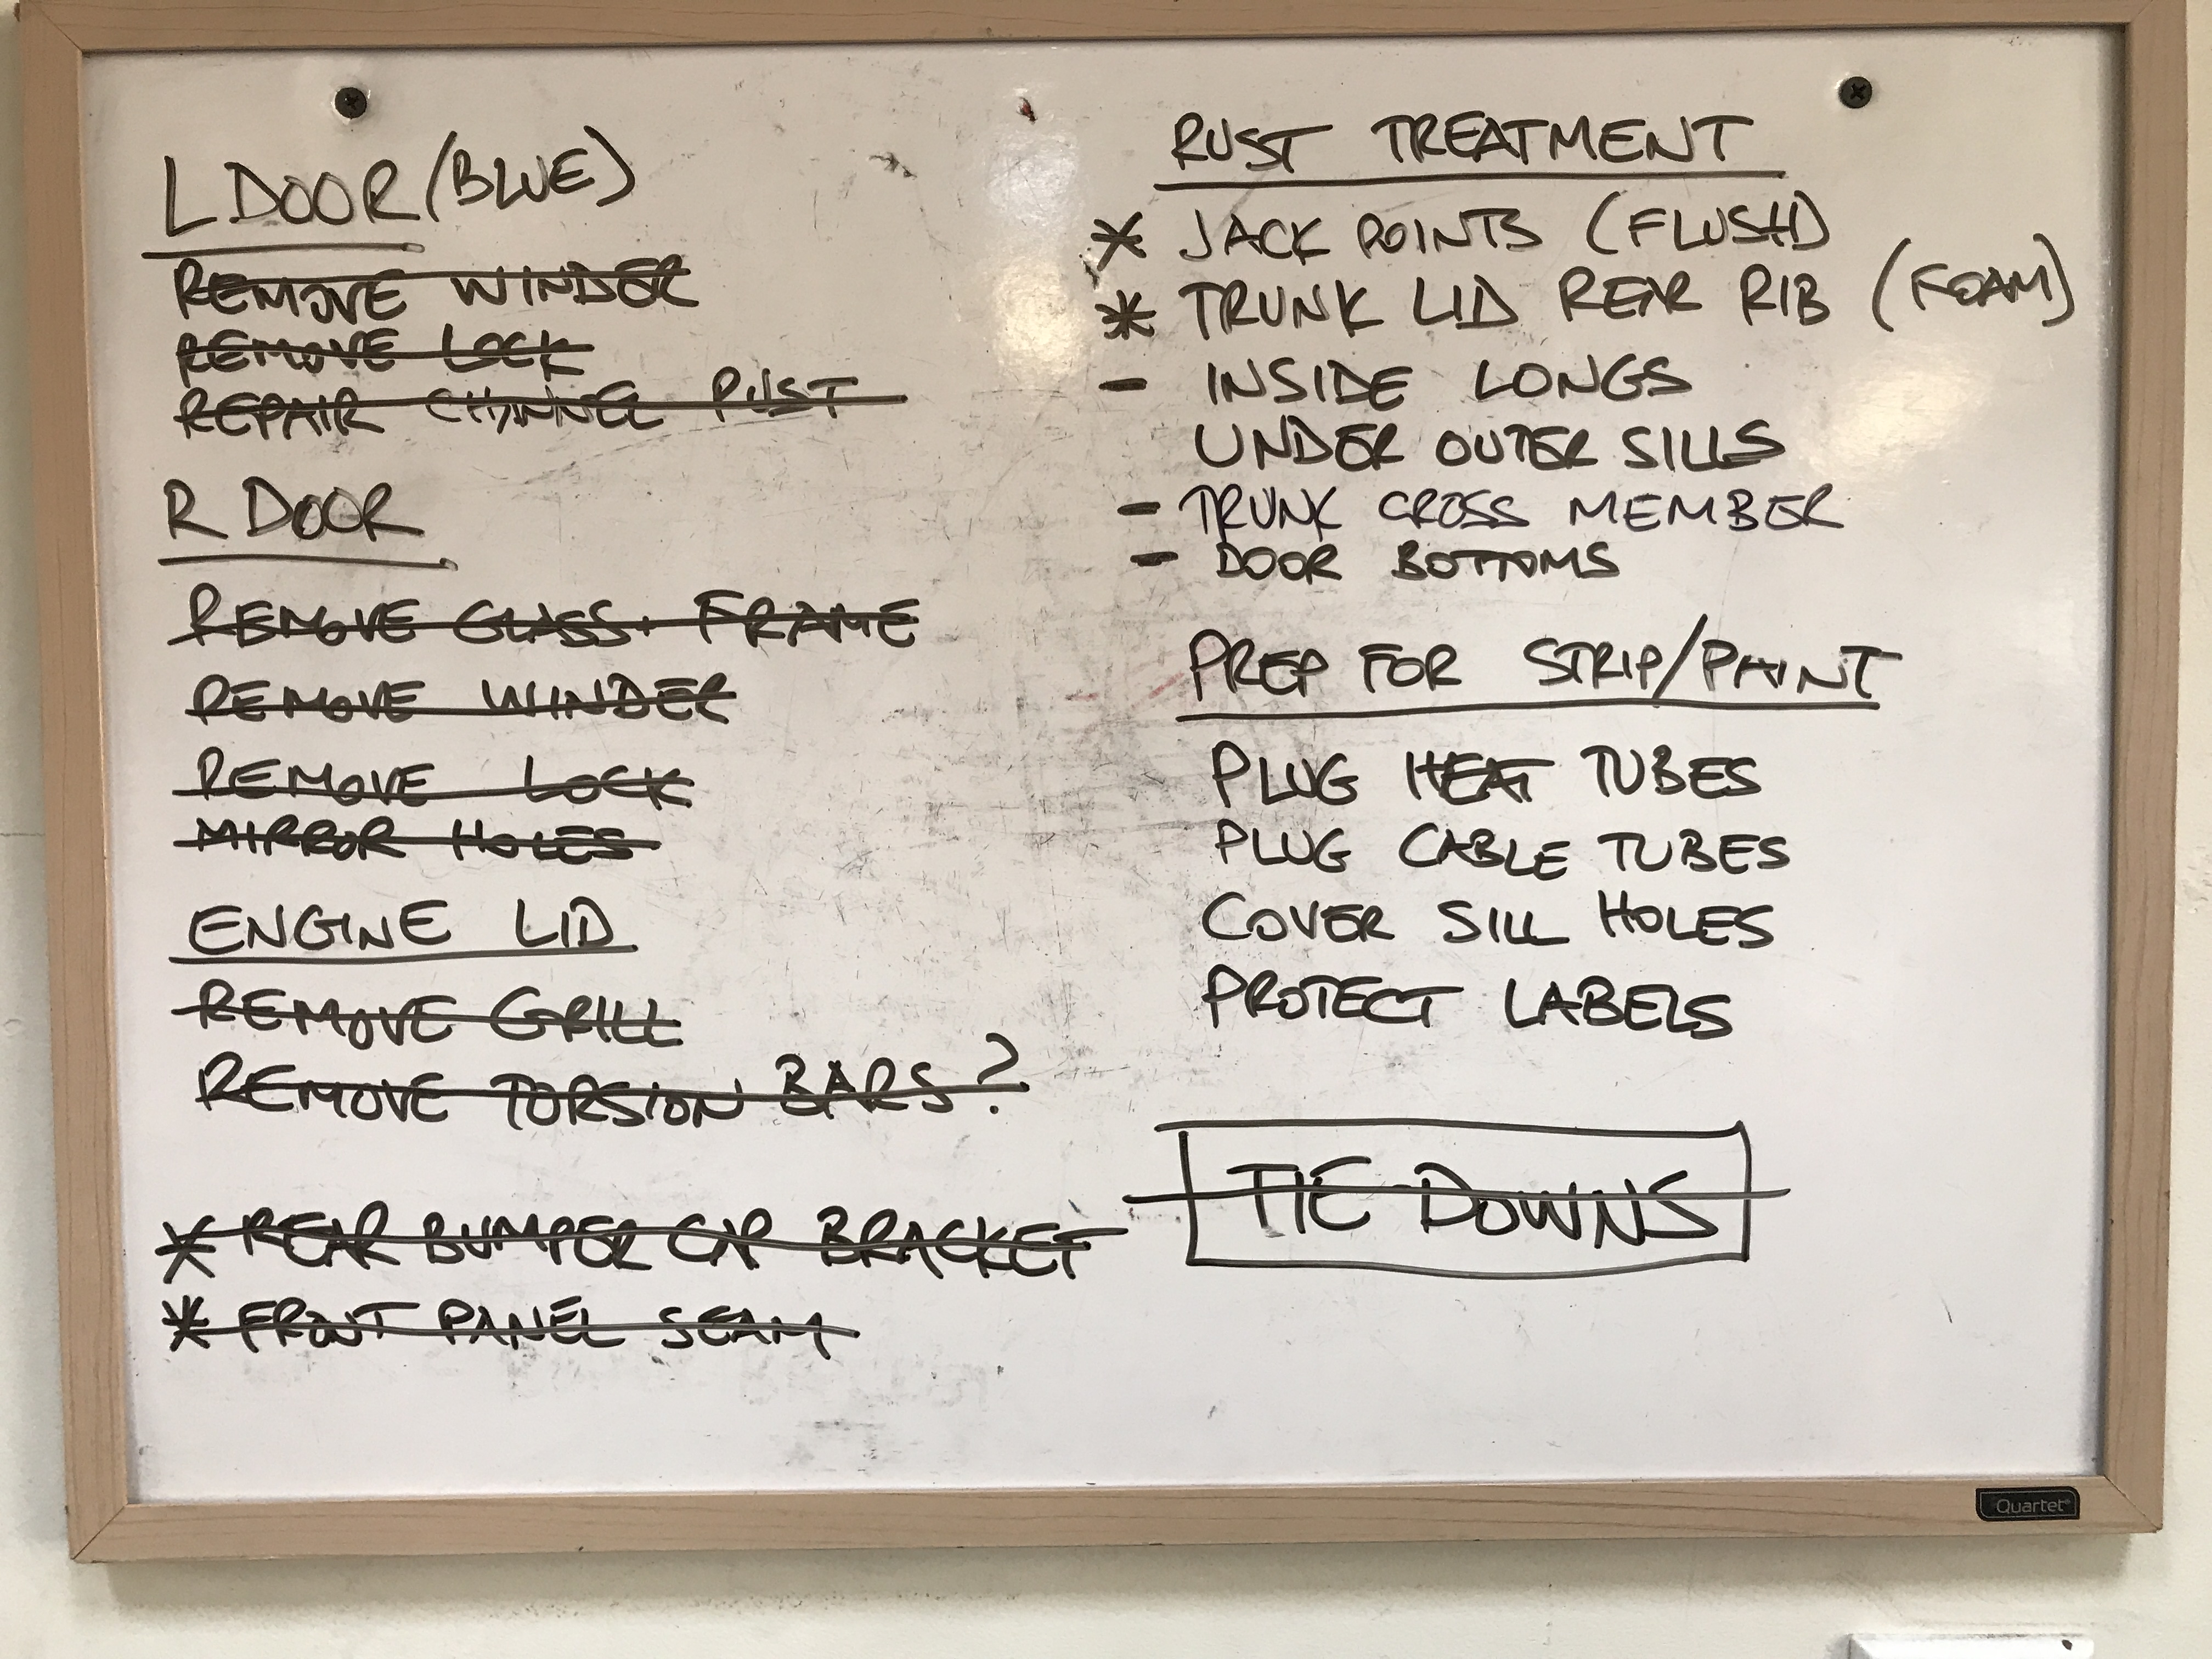 L DOOR (BLUE)
REMOVE WINDER
REMOVE LOCK
REPAIR CHANNEL RUST
R DOOR
REMOVE GLASS + FRAME
REMOVE WINDER
REMOVE LOCK
MIRROR HOLES
ENGINE LID
REMOVE GRILL
REMOVE TORSION BARS?
* REAR BUMPER CAP BRACKET
* FRONT PANEL SEAM
RUST TREATMENT
* JACK POINTS (FLUSH)
* TRUNK LID REAR RIB (FOAM)
- INSIDE LONGS
UNDER OUTER SILLS
- TRUNK CROSS MEMBER
- DOOR BOTTOMS
PREP FOR STRIP/PAINT
PLUG HEAT TUBES
PLUG CABLE TUBES
COVER SILL HOLES
PROTECT LABELS
TIE DOWNS
Quartet